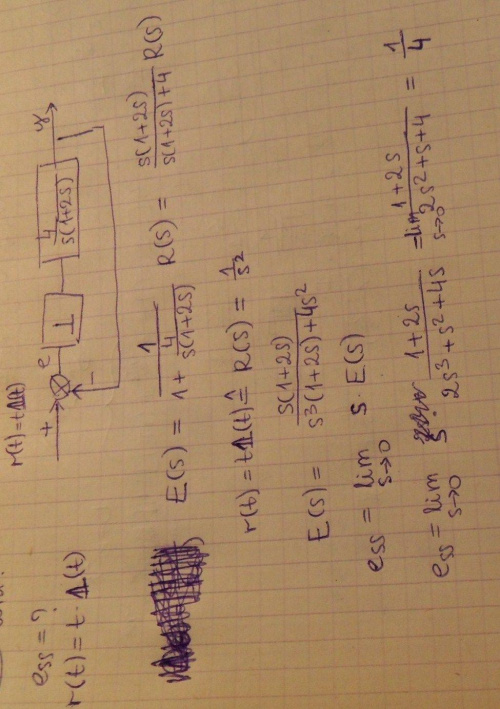 ess = ?
r(t) = t · 1(t)
r(t) = t1(t)
+
e
1
4 / s(1+2s)
y
-
E(s) = 1 / (1 + 4 / s(1+2s)) R(s) = s(1+2s) / (s(1+2s)+4) R(s)
r(t) = t1(t) ≙ R(s) = 1/s²
E(s) = s(1+2s) / (s³(1+2s)+4s²)
ess = lim s→0 s · E(s)
ess = lim s→0 s · (1+2s) / (2s³+s²+4s) = lim s→0 (1+2s) / (2s²+s+4) = 1/4